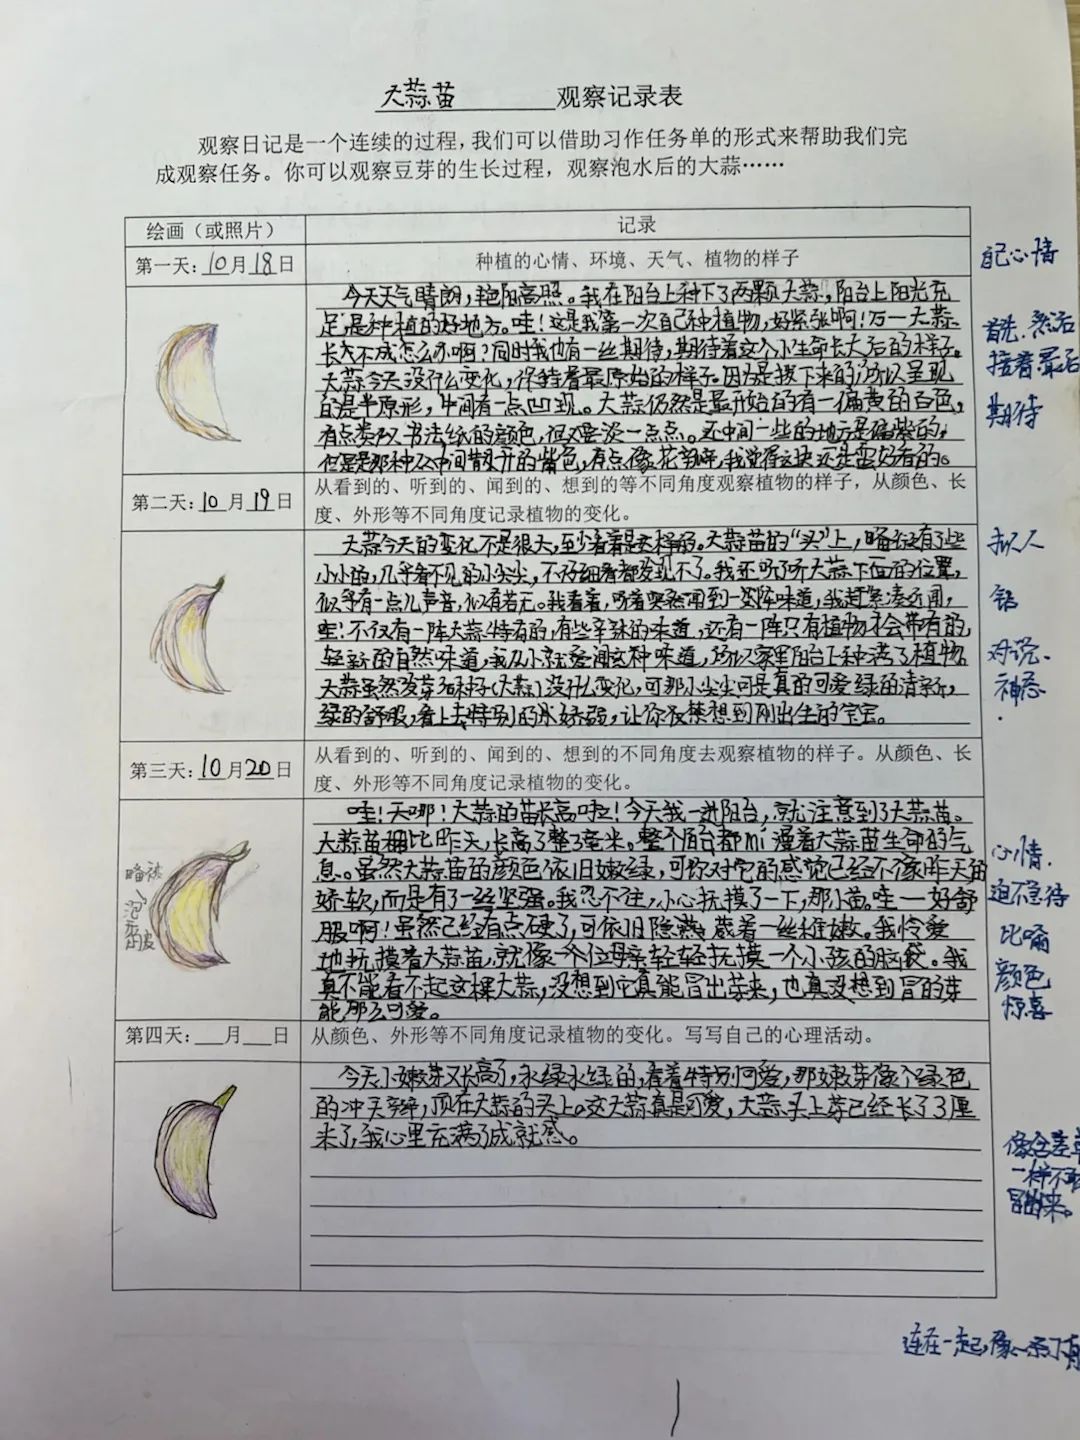 大蒜苗 观察记录表
观察日记是一个连续的过程，我们可以借助习作任务单的形式来帮助我们完
成观察任务。你可以观察豆芽的生长过程，观察泡水后的大蒜……
绘画（或照片）
记录
第一天：10月18日
种植的心情、环境、天气、植物的样子
今天天气晴朗，艳阳高照。我在阳台上种下了两颗大蒜，阳台上阳光充
足，是种植的好地方。哇！这是我第一次自己种植物，好紧张啊！万一大蒜
长大不成怎么办啊？同时我也有一丝期待，期待着这个小生命长大后的样子。
大蒜今天没什么变化，保持着最原始的样子。因为是拔下来的所以呈现
的是半原形，中间有一点凹现。大蒜仍然是最开始的有一偏黄的白色，
有点类似书法纸的颜色，但又要淡一点点。还中间一些的地方是偏紫的，
但是是那种从中间散开的紫色，有点像花瓣，我觉得这块还是蛮好看的。
第二天：10月19日
从看到的、听到的、闻到的、想到的等不同角度观察植物的样子，从颜色、长
度、外形等不同角度记录植物的变化。
大蒜今天的变化不是很大，至少看着是这样的。大蒜苗的“头”上，有了些
小小的，几乎看不见的小尖尖，不仔细看都发现不了。我还听了听大蒜下面的位置，
似乎有一点儿声音，似有若无。我看着，听着突然闻到一阵味道，我赶紧凑近闻，
哇！不仅有一阵大蒜特有的，有些辛辣的味道，还有一阵只有植物才会带有的，
轻轻的自然味道，我从小就爱闻这种味道，所以家里阳台上种满了植物。
大蒜虽然发芽了（大蒜）没什么变化，可那小尖尖可是真的可爱绿的清新，
绿的舒服，看上去特别的水娇弱，让你很想想到刚出生的宝宝。
第三天：10月20日
从看到的、听到的、闻到的、想到的不同角度去观察植物的样子。从颜色、长
度、外形等不同角度记录植物的变化。
哇！天哪！大蒜的苗长高啦！今天我一进阳台，就注意到了大蒜苗。
大蒜苗相比昨天，长高了整3毫米。整个阳台都mí漫着大蒜苗生命的气
息。虽然大蒜苗的颜色依旧嫩绿，可你对它的感觉已经不像昨天的
娇软，而是有了一丝坚强。我忍不住，小心抚摸了一下，那小苗，哇——好舒
服啊！虽然已经有点硬了，可依旧隐藏着一丝稚嫩。我怜爱
地抚摸着大蒜苗，就像一个位母亲轻轻抚摸一个小孩的脑袋。我
真不能看不起这棵大蒜，没想到它真能冒出芽来，也真没想到冒的芽
能那么可爱。
第四天：月日
从颜色、外形等不同角度记录植物的变化。写写自己的心理活动。
今天小嫩芽又长高了，永绿永绿的，看着特别可爱，那嫩芽像个绿色
的冲天辫，顶在大蒜的头上。这大蒜真是可爱，大蒜头上芽已经长了3厘
米了，我心里充满了成就感。
心情
首先、然后
接着最后
期待
拟人
钻
对说、
神态
心情、
迫不急待
比喻
颜色
惊喜
冒出来。
连在一起，像一